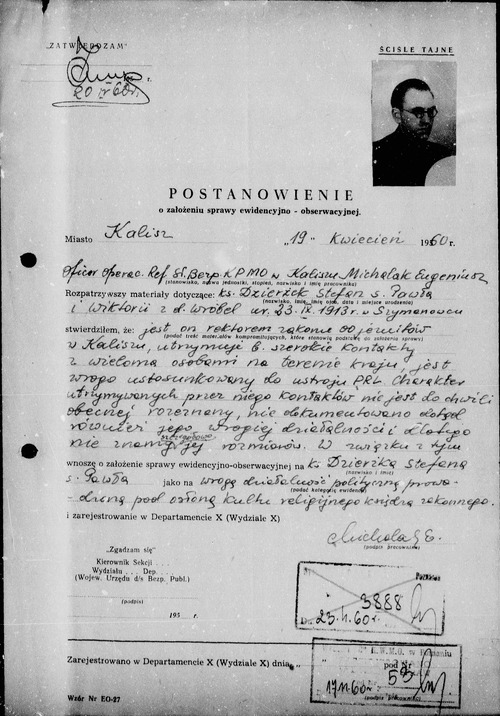 "ZATWIERDZAM"
ŚCIŚLE TAJNE
r.
20 IV 60r.
POSTANOWIENIE
o założeniu sprawy ewidencyjno-obserwacyjnej.
Miasto Kalisz "19" kwiecień 1960r.
Oficer Operac. Ref. Sł. Bezp. KPMO w Kaliszu Michalak Eugeniusz
(stanowisko, nazwa jednostki, stopień, nazwisko i imię pracownika)
Rozpatrzywszy materiały dotyczące: ks. Dzierżek Stefan s. Pawła
(nazwisko, imię, imię ojca, data i miejsce urodzenia)
i Wiktorii z d. Wróbel ur. 23.IX.1913r. w Szymanowcu
stwierdziłem, że: jest on rektorem zakonu oo jezuitów
(podać treść materiałów kompromitujących, które stanowią podstawę do założenia sprawy)
w Kaliszu, utrzymuje b. szerokie kontakty
z wieloma osobami na terenie kraju, jest
wrogo ustosunkowany do ustroju PRL. Charakter
utrzymywanych przez niego kontaktów nie jest do chwili
obecnej rozeznany, nie dokumentowano dotąd
również jego wrogiej działalności i dlatego
nie znamy jej szczegółowo rozmiarów. W związku z tym
wnoszę o założenie sprawy ewidencyjno-obserwacyjnej na ks. Dzierżka Stefana
(nazwisko i imię)
s. Pawła jako na wrogą działalność polityczną prowa-
(podać kategorię ewidencji)
dzoną pod osłoną kultu religijnego księdza zakonnego.
i zarejestrowanie w Departamencie X (Wydziale X)
Michalak E.
(podpis pracownika)
"Zgadzam się"
Kierownik Sekcji . . .
Wydziału . . . Dep. . . .
(Wojew. Urzędu d/s Bezp. Publ.)
(podpis)
195 r.
3888
23.4.60r.
K.W.M.O. w Poznaniu
Zarejestrowano w Departamencie X (Wydziale X) dnia "
pod Nr
(podpis pracownika)
Wzór Nr EO-27